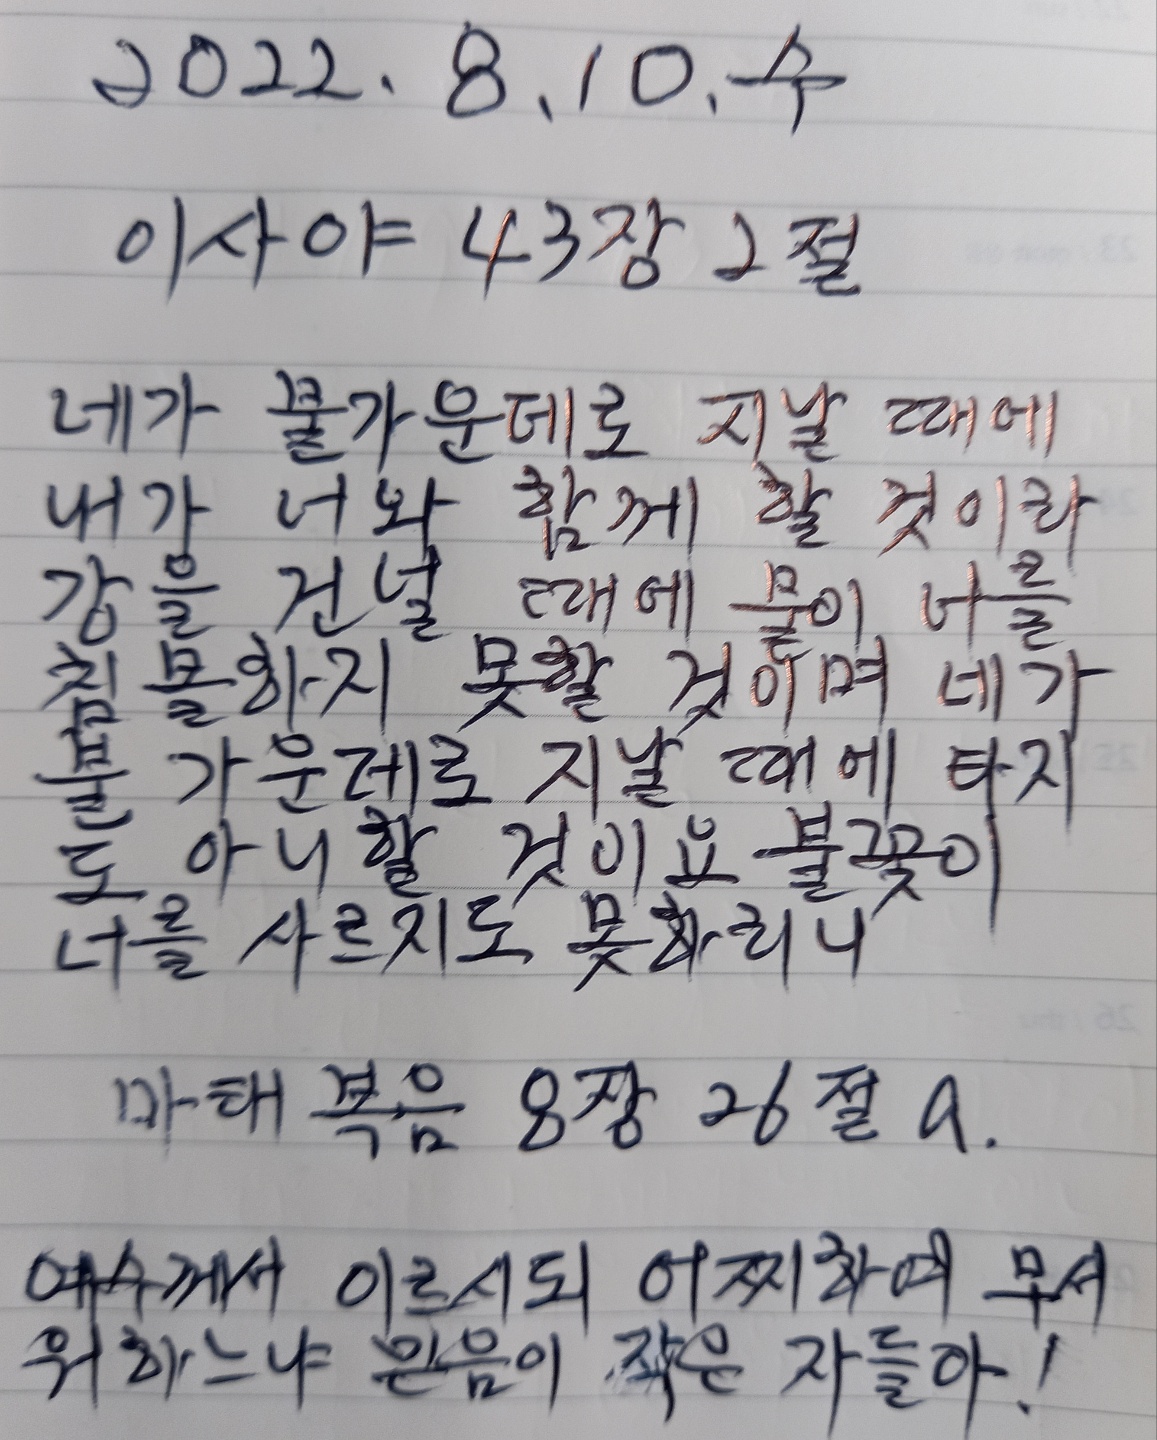 2022. 8. 10. 수
이사야 43장 2절
네가 물가운데로 지날 때에
내가 너와 함께 할 것이라
강을 건널 때에 물이 너를
침몰하지 못할 것이며 네가
불 가운데로 지날 때에 타지
도 아니할 것이요 불꽃이
너를 사르지도 못하리니
마태복음 8장 26절 a.
예수께서 이르시되 어찌하여 무서
워하느냐 믿음이 작은 자들아!